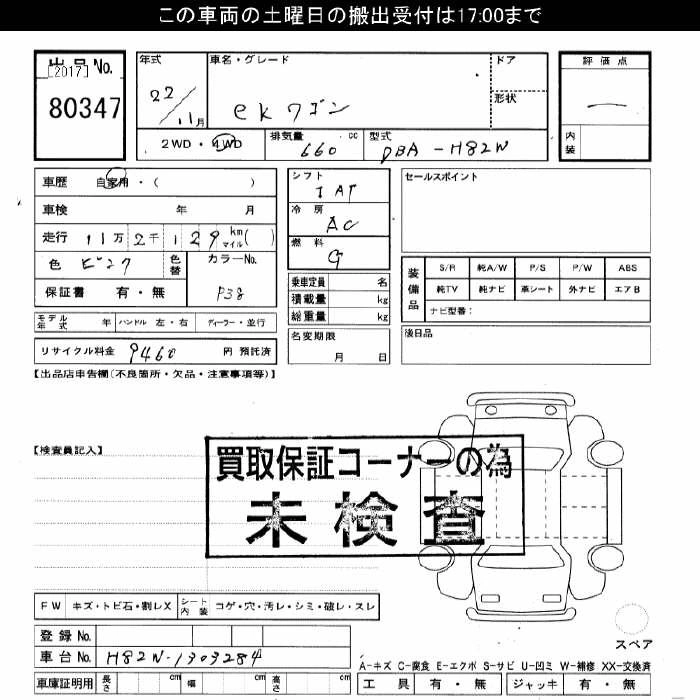 この車両の土曜日の搬出受付は17:00まで
出品No.
[2017]
80347
年式
22/11月
車名・グレード
ekワゴン
ドア
形状
評価点
—
内装
2WD・4WD
排気量 660 cc
型式 DBA-H82W
車歴 自家用・( )
車検 年 月
走行 11万2千129 km マイル( )
色 ピンク
色替
カラーNo. P38
保証書 有・無
シフト
IAT
冷房
AC
燃料
G
乗車定員 名
積載量 kg
総重量 kg
セールスポイント
装備品
S/R 純A/W P/S P/W ABS
純TV 純ナビ 革シート 外ナビ エアB
ナビ型番:
モデル年式 年 ハンドル 左・右 ディーラー・並行
名変期限
月 日
後日品
リサイクル料金 9460 円 預託済
【出品店申告欄(不良箇所・欠品・注意事項等)】
【検査員記入】
買取保証コーナーの為
未検査
FW キズ・トビ石・割レX シート内装 コゲ・穴・汚レ・シミ・破レ・スレ
登録No.
車台No. H82W-1303284
スペア
A-キズ C-腐食 E-エクボ S-サビ U-凹ミ W-補修 XX-交換済
車庫証明用 長さ cm 幅 cm 高さ cm
工具 有・無 ジャッキ 有・無